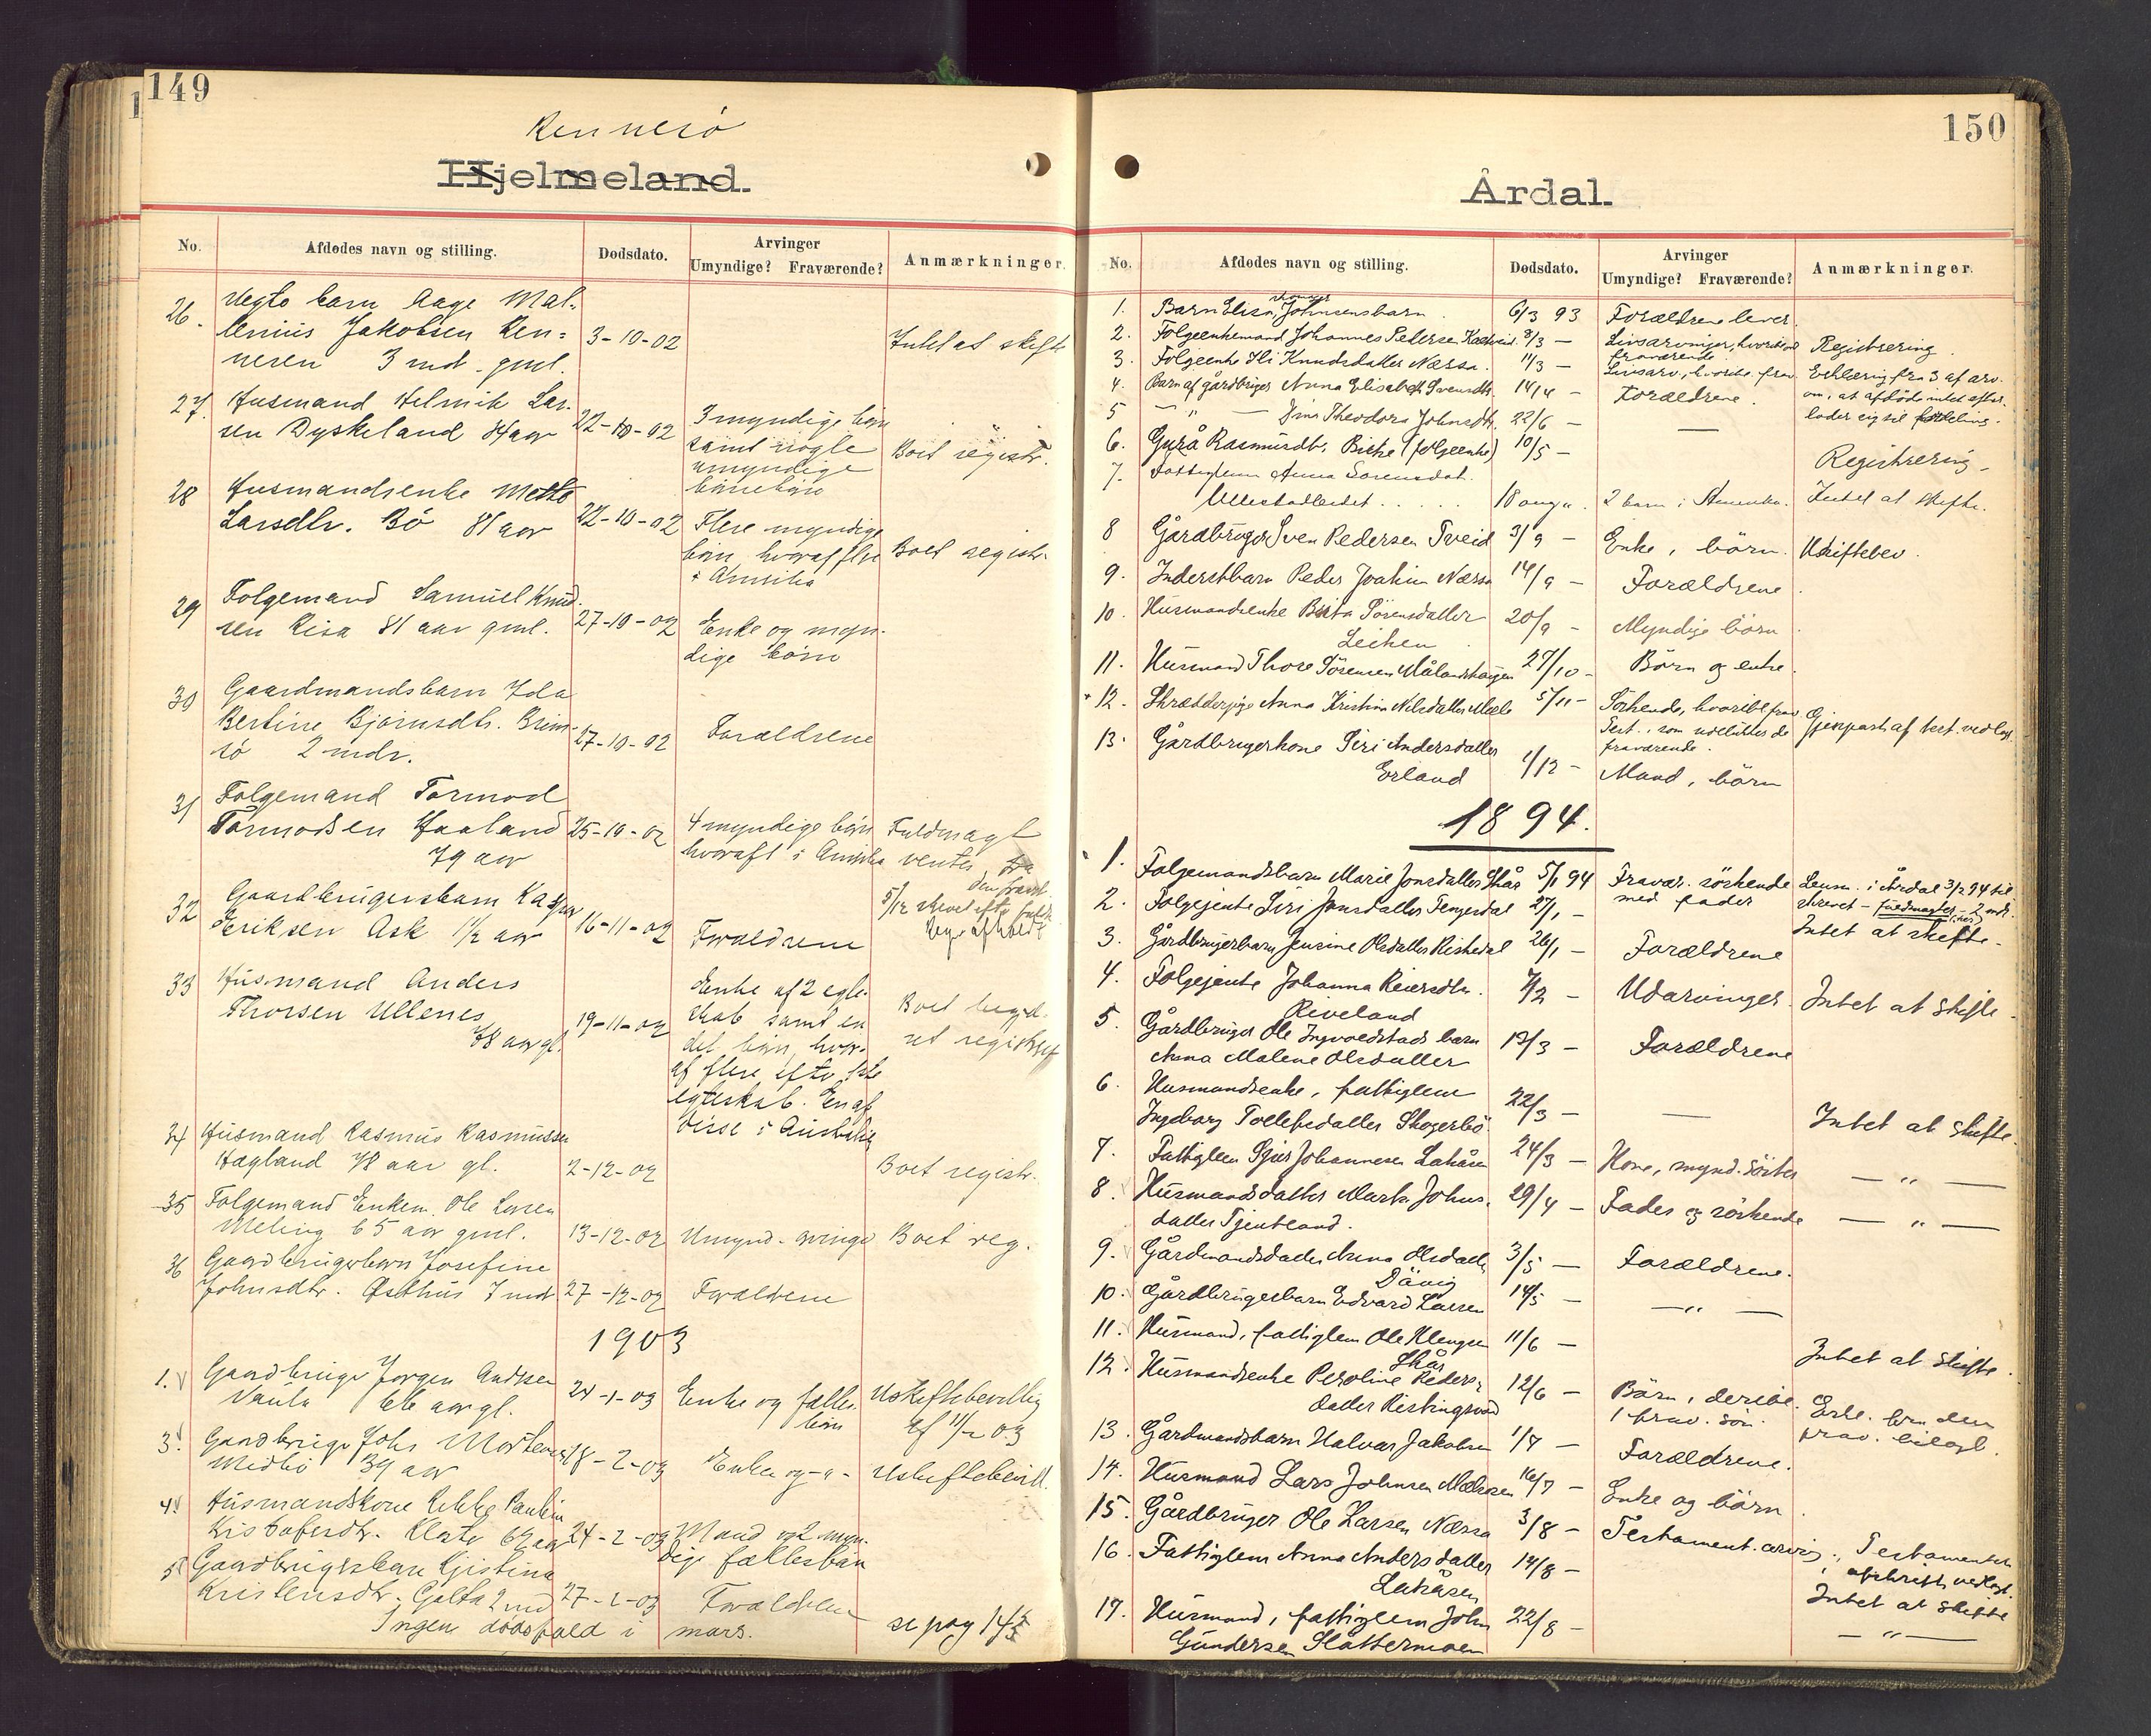 149
Rennesö
Hjelmeland.
No.
Afdødes navn og stilling.
Dødsdato.
Arvinger
Umyndige? Fraværende?
Anmærkninger.
26. Uegte barn Aage Mat-
Jakobsen Ren=
3-10-02
Intet at skifte
nesen 3 md. gml.
27. Husmand Helmik Lar-
sen Dyskeland 84 aar
22-10-02
3 myndige börn
samt nogle
umyndige
börnebörn
Boet registr.
28 Husmandsenke Mette
Larsdtr. Bö 81 aar
22-10-02
Flere myndige
börn hvoraf flere
i Amerika
Boet registr.
29 Folgemand Samuel Knud-
sen Risa 81 aar gml.
27-10-02
Enke og myn-
dige börn
30 Gaardmandsbarn Ida
Bertine Bjornsdtr. Brim-
sö 2 mdr.
27-10-02
Forældrene
31 Folgemand Tormod
Tormodsen Haaland
79 aar
25-10-02
4 myndige börn
hvoraf 1 i Amerika
Fuldmagt
ventes fra
den fravær.
5/12 skrevet efter
32 Gaardbrugersbarn Kaspar
Eriksen Ask 1½ aar
16-11-02
Forældrene
33 Husmand Anders
Thorsen Ullenes
78 aar gl.
19-11-02
Enke af 2 egte-
skab samt en
del börn, hvor-
af flere efter 1ste
egteskab. En af
disse i Australien
Boet
registrert
34 Husmand Rasmus Rasmussen
Hagland 78 aar gl.
2-12-02
Boet registr.
35 Folgemand Enkem. Ole Larsen
Meling 65 aar gml.
13-12-02
Umynd. arvinge
Boet reg.
36 Gaardbrugerbarn Josefine
Johnsdtr. Østhus 7 md
27-12-02
Forældrene
1903
1. Gaardbruger Jorgen Andsen
Vaula 66 aar gl.
24-1-03
Enke og fælles
börn
Uskiftebevilling
af 11/2 03
3. Gaardbruger Johs Mortensen
Medbö 39 aar
18-2-03
Enke og -"-
Uskiftebevill.
4. Husmandskone Rebke Paulin
Kristofersdtr. Kloster 62 aar
24-2-03
Mand og 2 myn-
dige fællesbörn
5 Gaardbrugersbarn Kjistina
Kristensdtr. Galta 2 md
27-2-03
Forældrene
Ingen dödsfald i mars.
se pag 145
150
Årdal.
No.
Afdødes navn og stilling.
Dødsdato.
Arvinger
Umyndige? Fraværende?
Anmærkninger.
1. Barn Elisa Johnsensbarn
6/3 93
Forældrene lever.
2. Folgeenkemand Johannes Pedersen
8/3 -
Livsarvinger, hvoribl
fraværende.
Registrering.
3. Folgeenke Ili Knudsdatter Næssa.
11/3 -
Livsarv., hvoribl. frav.
Erklæring fra 3 af arv.
4. Barn af gårdbruger Anna Elisabeth Svensdtr.
14/4 -
Forældrene.
om, at afdöde intet efter-
5 - " - Dina Theodora Johnsdtr.
22/6 -
—
lader sig til fordeling.
6. Gurå Rasmusdtr. Bishe (folgeenke)
10/5 -
Registrering.
7. Fattiglem Anna Sorensdat.
Ullestadbeidet . . . . .
18 aug ".
2 barn i Amerika.
Intet at skifte.
8 Gårdbruger Sven Pedersen Tveid
3/9 -
Enke, börn.
Uskiftebev.
9. Inderstbarn Peder Joakim Næssa
14/9 -
Forældrene
10. Husmandsenke Brita Sörensdatter
Leiken
20/9 -
Myndige börn
11. Husmand Thore Sörensen Målandshagen
27/10 -
Börn og enke.
12. Skrædderpige Anna Kristine Nilsdatter Mæle
5/11 -
Söskende, hvoribl frav.
Test., som udelukter de
fraværende.
Gjenpart af test. vedlagt.
13. Gårdbrugerkone Siri Andersdatter
Erland
1/12 -
Mand, börn
1894.
1. Folgemandsbarn Marie Jonsdatter Skår
5/1 94
Fravær. söskende
med fader
Lensm. i Årdal 3/2 94 til-
skrevet - fuldmagter - 2 mdr.
2. Folgejente Siri Jonsdatter Tengesdal
27/1 -
Intet at skifte.
3. Gårdbrugerbarn Jensine Olsdatter Riskedal
26/1 -
Forældrene
4. Folgejente Johanna Reiersdtr.
Riveland
7/2 -
Udarvinger.
Intet at skifte.
5. Gårdbruger Ole Ingvaldstads barn
Anna Malene Olsdatter
13/3 -
Forældrene
6. Husmandsenke, fattiglem
Ingeborg Tollefsdatter Skogerbö.
22/3 -
—
Intet at skifte.
7. Fattiglem Sjur Johannesen Lakåsen
24/3 -
Kone, mynd. döttre
— " —
8. Husmandsdatter Marta Johns.
datter Tjentland.
29/4 -
Fader og söskende
— " —
9. Gårdmandsdatter Anna Olsdatter
Dåvig
3/5 —
Forældrene.
10. Gårdbrugerbarn Edvard Larsen
14/5 -
— " —
11. Husmand, fattiglem Ole Klengsen
Skår
11/6 —
Intet at skifte.
12. Husmandsenke Peroline Peders-
datter Ristingsvod
12/6 -
Börn, deribl.
1 frav. sön.
Erkl. fra den
frav. bilagt.
13. Gårdmandsbarn Halvar Jakobsen
1/7 —
Forældrene.
14. Husmand Lars Johnsen Mælssen
16/7 -
Enke og börn
15. Gårdbruger Ole Larsen Næssa
3/8 -
Testament. arving.
Testamentets
afskrift vedlagt.
16. Fattiglem Anna Andersdatter
Lakåsen
14/8 -
Intet at skifte
17. Husmand, fattiglem John
Gundersen Slåttermoen
22/8 -
— " —